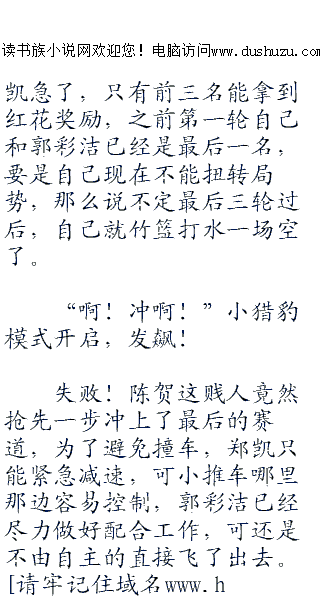 读书族小说网欢迎您！电脑访问www.dushuzu.com
凯急了，只有前三名能拿到
红花奖励，之前第一轮自己
和郭彩洁已经是最后一名，
要是自己现在不能扭转局
势，那么说不定最后三轮过
后，自己就竹篮打水一场空
了。
“啊！冲啊！”小猎豹
模式开启，发飙！
失败！陈贺这贱人竟然
抢先一步冲上了最后的赛
道，为了避免撞车，郑凯只
能紧急减速，可小推车哪里
那边容易控制，郭彩洁已经
尽力做好配合工作，可还是
不由自主的直接飞了出去。
[请牢记住域名www.h